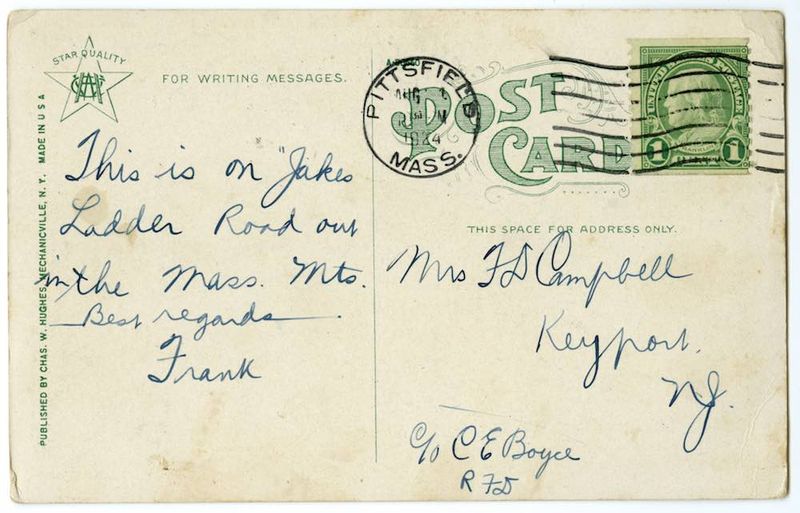 STAR QUALITY
FOR WRITING MESSAGES.
POST
CARD
PITTSFIELD
AUG
1924
MASS.
UNITED STATES POSTAGE
1 FRANKLIN 1
THIS SPACE FOR ADDRESS ONLY.
This is on "Jakes
Ladder Road out
in the Mass. Mts.
Best regards
Frank
Mrs F D Campbell
Keyport.
NJ.
c/o C E Boyce
R F D
PUBLISHED BY CHAS. W. HUGHES, MECHANICVILLE, N. Y. MADE IN U S A